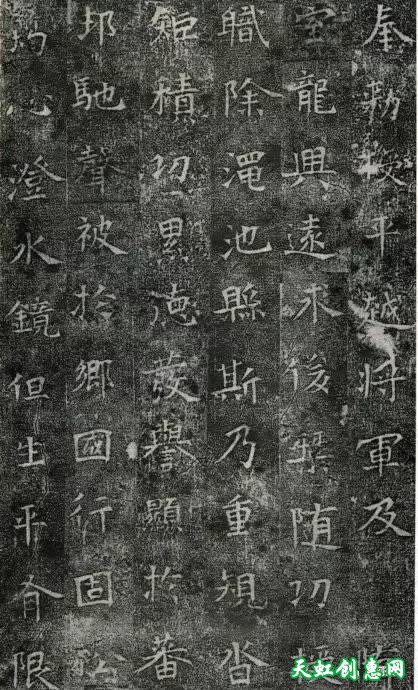 奉勑授平越将軍及隋
室龍興遠求後随功
職除澠池縣斯乃重規沓
矩積功累德譽顯於蕃
邦馳聲被於鄉國行固松
灼心澄水鏡但生平有限
天虹创意网